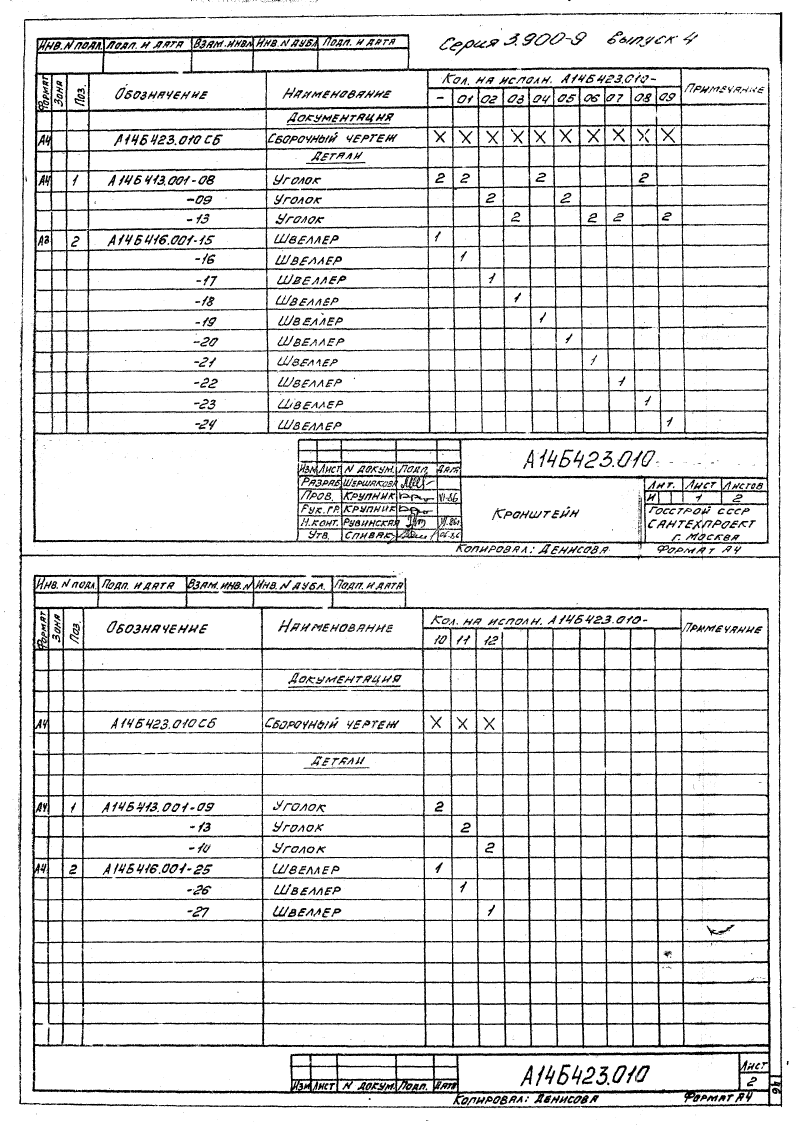 Серия 3.900-9 Выпуск 4
Инв. N подл. Подп. и дата Взам. инв. N Инв. N дубл. Подп. и дата
Формат Зона Поз. Обозначение Наименование Кол. на исполн. А14Б423.010- Примечание
- 01 02 03 04 05 06 07 08 09
Документация
А4 А14Б423.010 СБ Сборочный чертеж X X X X X X X X X X
Детали
А4 1 А14Б413.001-08 Уголок 2 2 2 2
-09 Уголок 2 2
-13 Уголок 2 2 2 2
А3 2 А14Б416.001-15 Швеллер 1
-16 Швеллер 1
-17 Швеллер 1
-18 Швеллер 1
-19 Швеллер 1
-20 Швеллер 1
-21 Швеллер 1
-22 Швеллер 1
-23 Швеллер 1
-24 Швеллер 1
А14Б423.010
Изм. Лист N докум. Подп. Дата
Разраб. Шершакова
Пров. Крупник VI.86
Рук. гр. Крупник
Н. конт. Рувинская VI.86
Утв. Спивак
Кронштейн
Лит. Лист Листов
И 1 2
Госстрой СССР
Сантехпроект
г. Москва
Копировал: Денисова Формат А4
Инв. N подл. Подп. и дата Взам. инв. N Инв. N дубл. Подп. и дата
Формат Зона Поз. Обозначение Наименование Кол. на исполн. А14Б423.010- Примечание
10 11 12
Документация
А4 А14Б423.010 СБ Сборочный чертеж X X X
Детали
А4 1 А14Б413.001-09 Уголок 2
-13 Уголок 2
-14 Уголок 2
А4 2 А14Б416.001-25 Швеллер 1
-26 Швеллер 1
-27 Швеллер 1
Изм. Лист N докум. Подп. Дата
А14Б423.010
Лист
2
Копировал: Денисова Формат А4
46